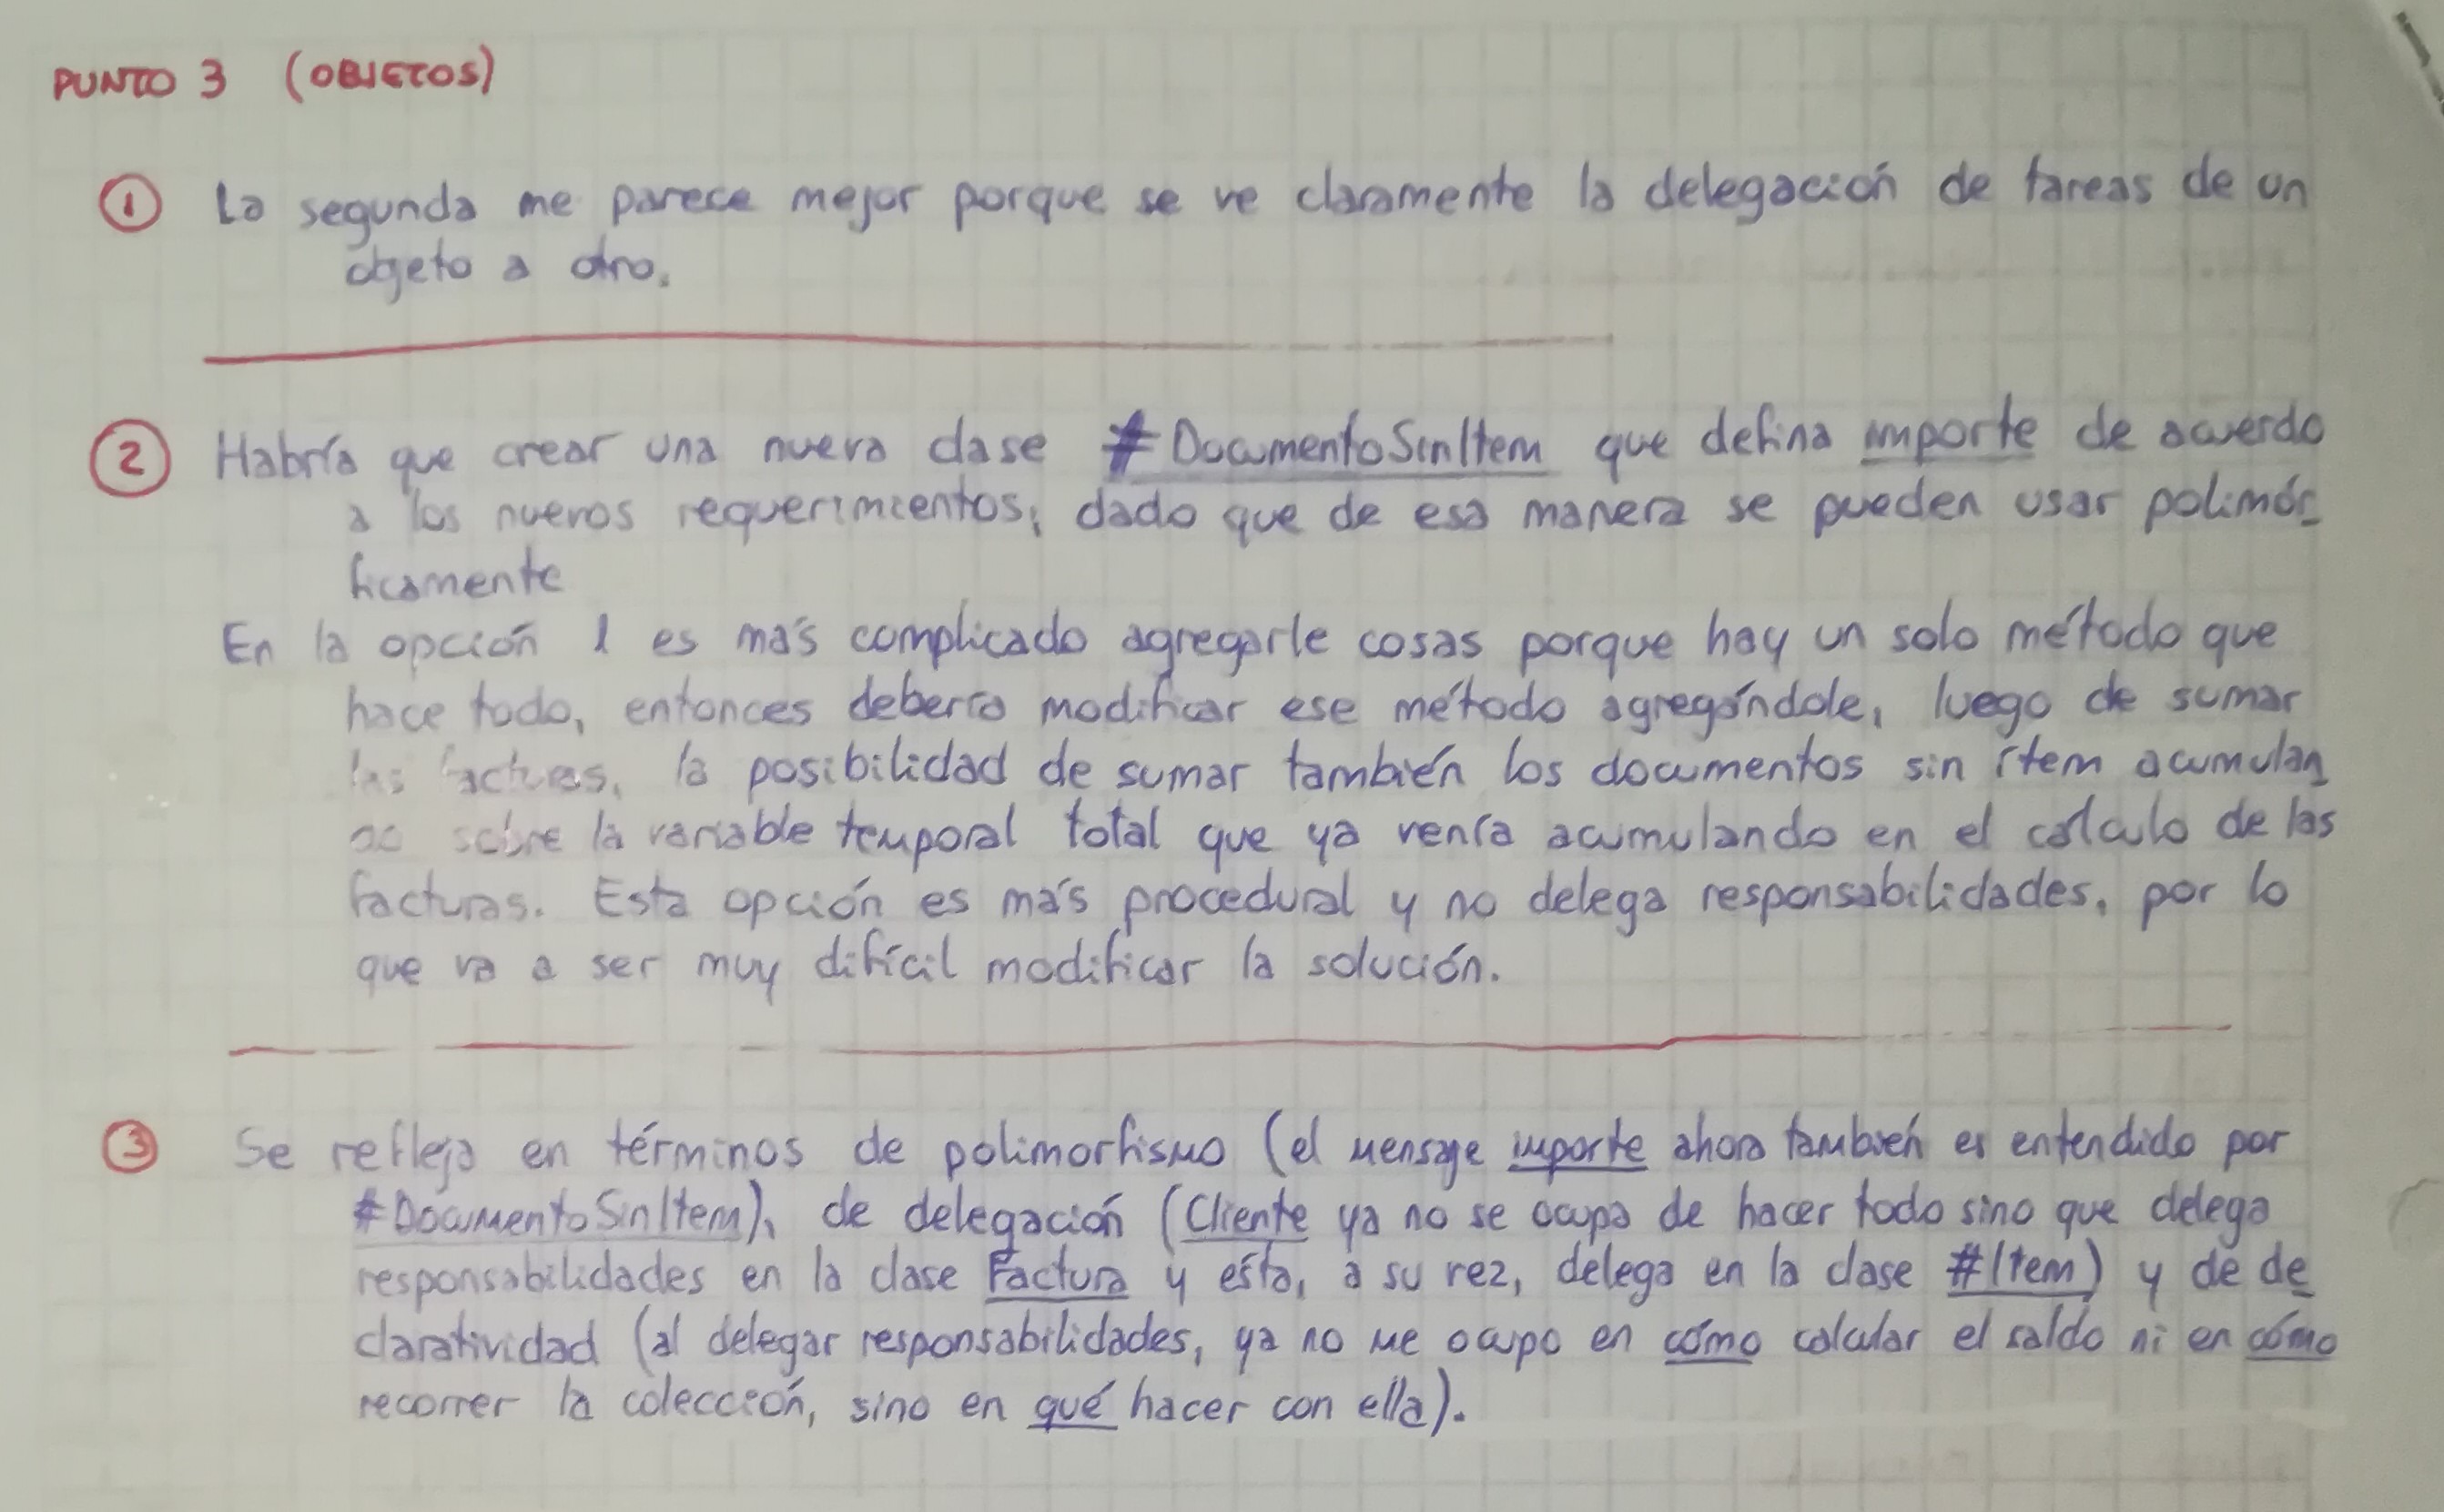 PUNTO 3 (OBJETOS)
① La segunda me parece mejor porque se ve claramente la delegación de tareas de un
objeto a otro.
② Habría que crear una nueva clase #DocumentoSinItem que defina importe de acuerdo
a los nuevos requerimientos, dado que de esa manera se pueden usar polimór
ficamente
En la opción 1 es más complicado agregarle cosas porque hay un solo método que
hace todo, entonces debería modificar ese método agregándole, luego de sumar
las facturas, la posibilidad de sumar también los documentos sin ítem acumulan
do sobre la variable temporal total que ya venía acumulando en el cálculo de las
facturas. Esta opción es más procedural y no delega responsabilidades, por lo
que va a ser muy difícil modificar la solución.
③ Se refleja en términos de polimorfismo (el mensaje importe ahora también es entendido por
#DocumentoSinItem), de delegación (Cliente ya no se ocupa de hacer todo sino que delega
responsabilidades en la clase Factura y ésta, a su vez, delega en la clase #Item) y de de
claratividad (al delegar responsabilidades, ya no me ocupo en cómo calcular el saldo ni en cómo
recorrer la colección, sino en qué hacer con ella).